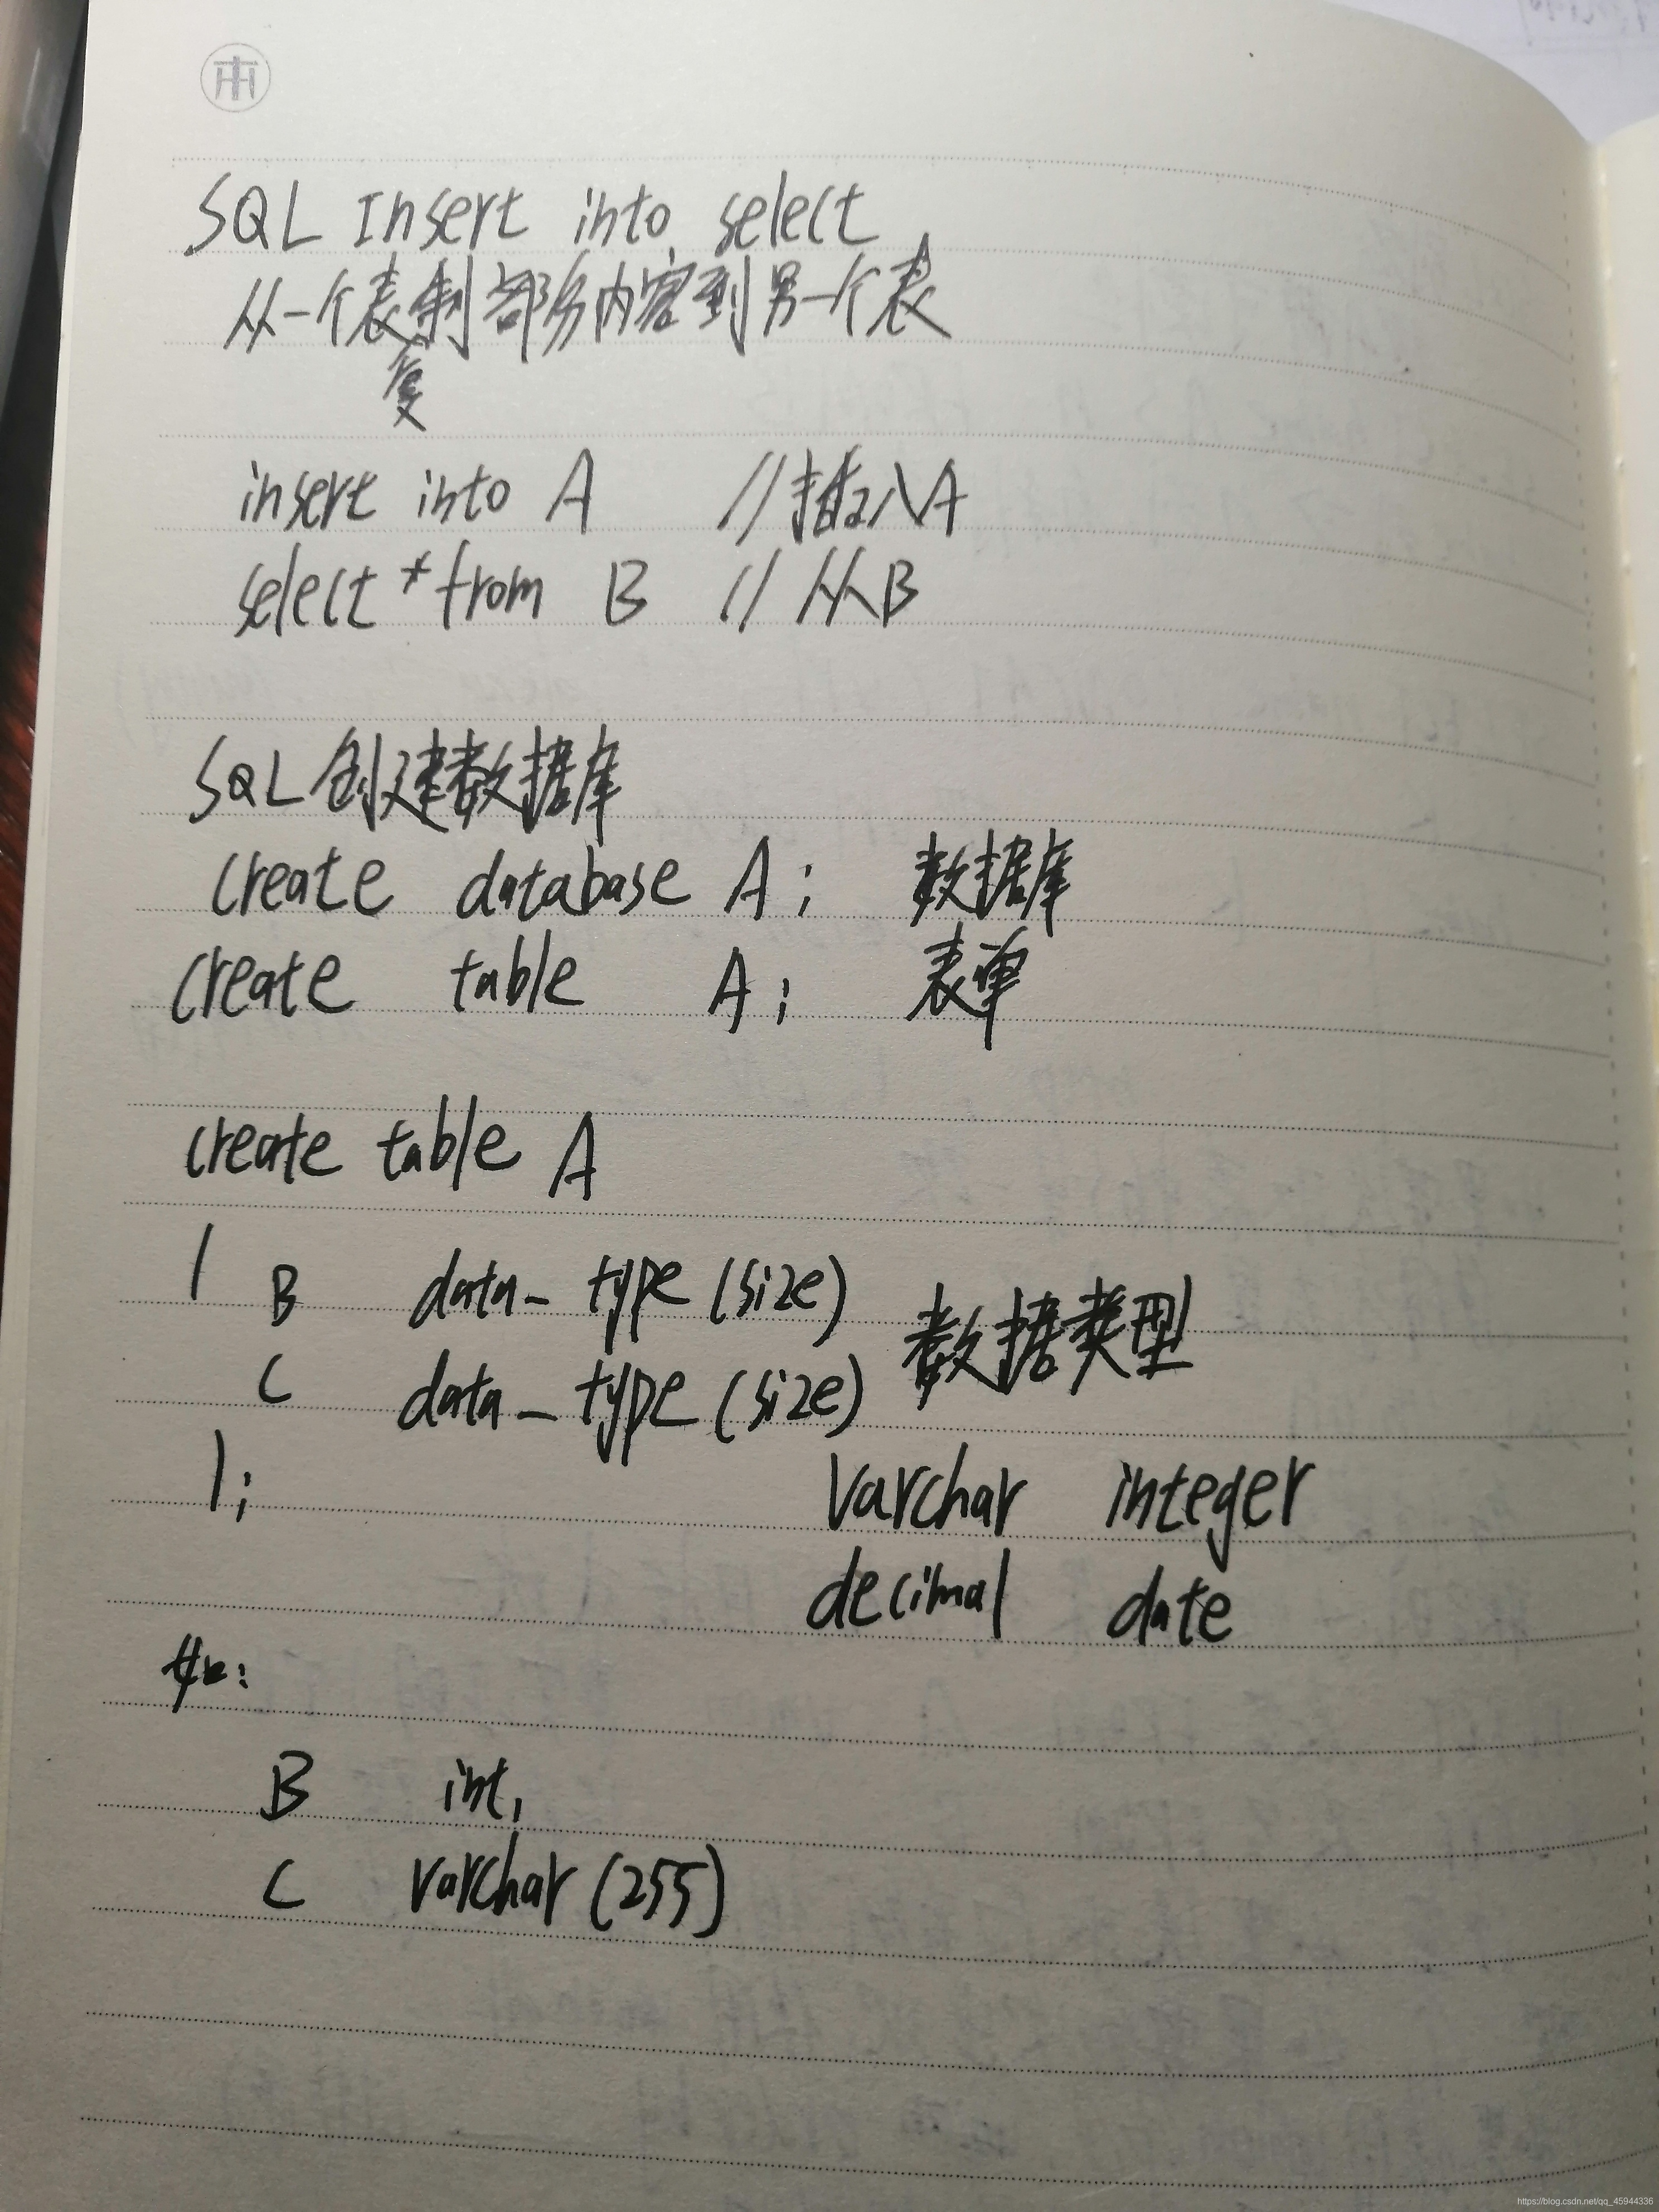 SQL Insert into select
从一个表复制部分内容到另一个表
insert into A //插入A
select * from B // 从B
SQL创建数据库
create database A; 数据库
create table A; 表单
create table A
(
B data_type(size)
C data_type(size) 数据类型
);
varchar integer
decimal date
如:
B int,
C varchar(255)
https://blog.csdn.net/qq_45944336